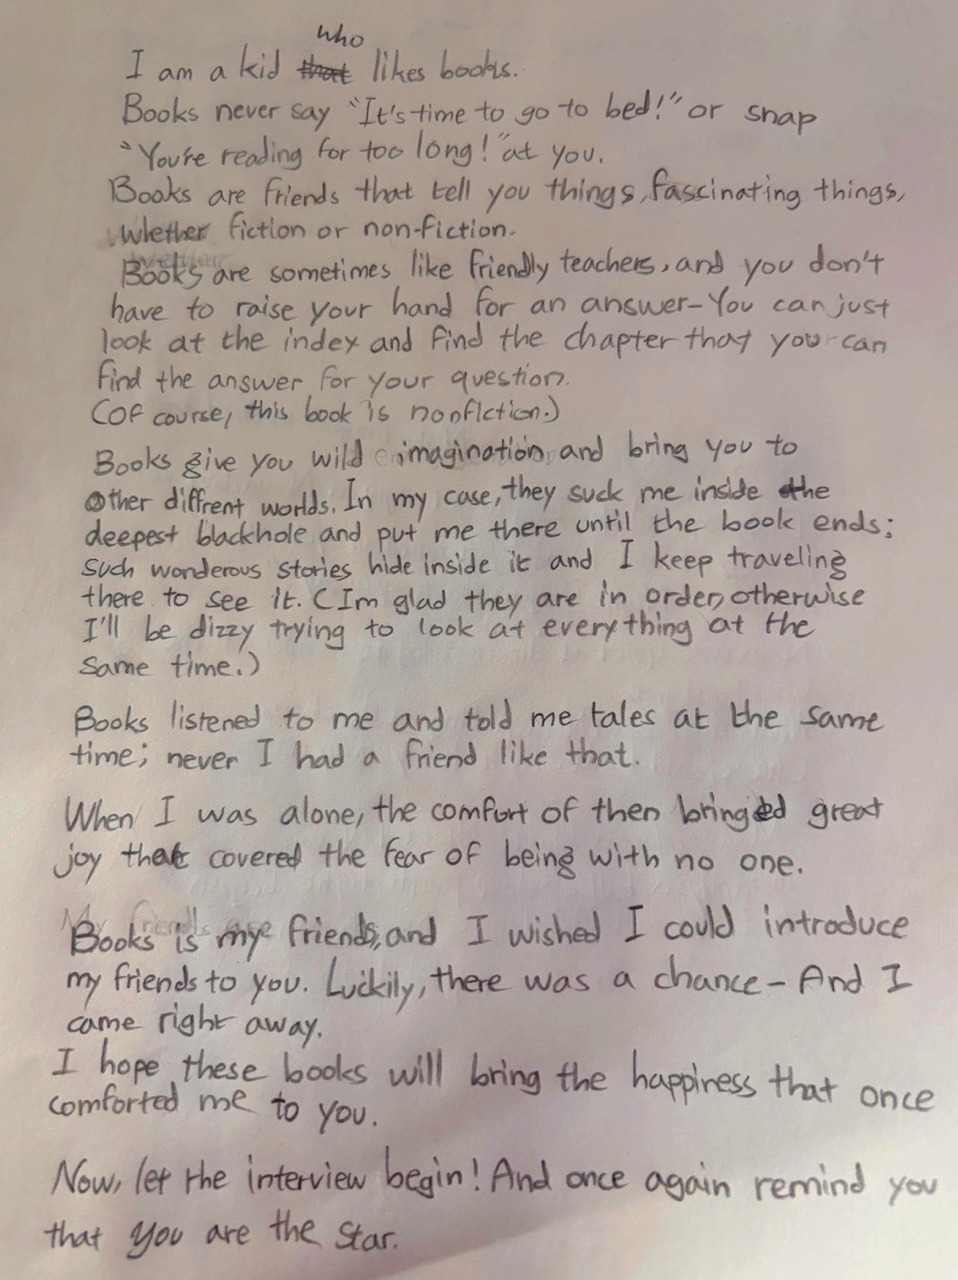 I am a kid who likes books.
Books never say "It's time to go to bed!" or snap
"You're reading for too long!" at you.
Books are friends that tell you things, fascinating things,
whether fiction or non-fiction.
Books are sometimes like friendly teachers, and you don't
have to raise your hand for an answer-You can just
look at the index and find the chapter that you can
find the answer for your question.
(Of course, this book is nonfiction.)
Books give you wild imagination, and bring you to
other diffrent worlds. In my case, they suck me inside the
deepest blackhole and put me there until the book ends;
such wonderous stories hide inside it and I keep traveling
there to see it. (Im glad they are in order, otherwise
I'll be dizzy trying to look at everything at the
same time.)
Books listened to me and told me tales at the same
time; never I had a friend like that.
When I was alone, the comfort of then bringed great
joy that covered the fear of being with no one.
Books is my friends, and I wished I could introduce
my friends to you. Luckily, there was a chance- And I
came right away.
I hope these books will bring the happiness that once
comforted me to you.
Now, let the interview begin! And once again remind you
that you are the star.